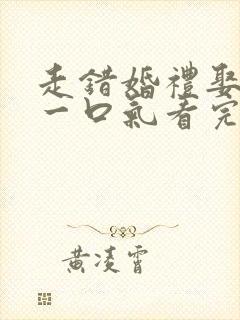 走錯婚禮娶
一口氣看完
黃凌霄